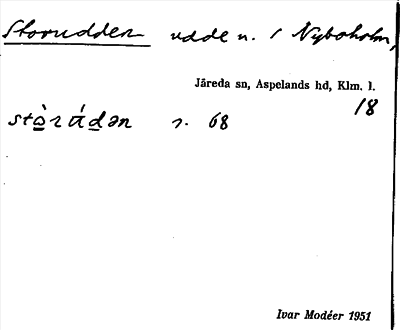 Storudden udde n. / Nyboholm,
Järeda sn, Aspelands hd, Klm. l.
18
stò̱rúd̲ən s. 68
Ivar Modéer 1951